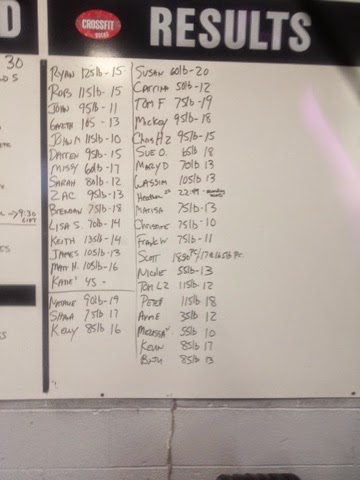 D
CROSSFIT
RESULTS
30
Ryan 125lb-15
Rob 115lb-15
John 95lb-11
Gareth 105-13
John M 115lb-10
Darren 95lb-15
Missy 60lb-17
Sarah 80lb-12
Zac 95lb-13
→9:30
Brendan 75lb-18
Lisa S. 70lb-14
Keith 135lb-14
James 105lb-13
Matt H. 105lb-16
Katie 45-
Natalie 90lb-19
Shana 75lb 17
Kelly 85lb 16
Susan 60lb-20
Catrina 50lb-12
Tom F 75lb-19
Mckoy 95lb-18
Chris H2 95lb-15
Sue O. 65lb 18
Mary D 70lb 13
Wassim 105lb 13
Heather
Marisa 75lb-13
Christine 75lb-10
Frank W 75lb-11
Scott
Nicole 55lb-13
Tom L2 115lb 12
Peter 115lb 18
Anne 35lb 12
Melissa 55lb 10
Kevin 85lb 17
85lb 13